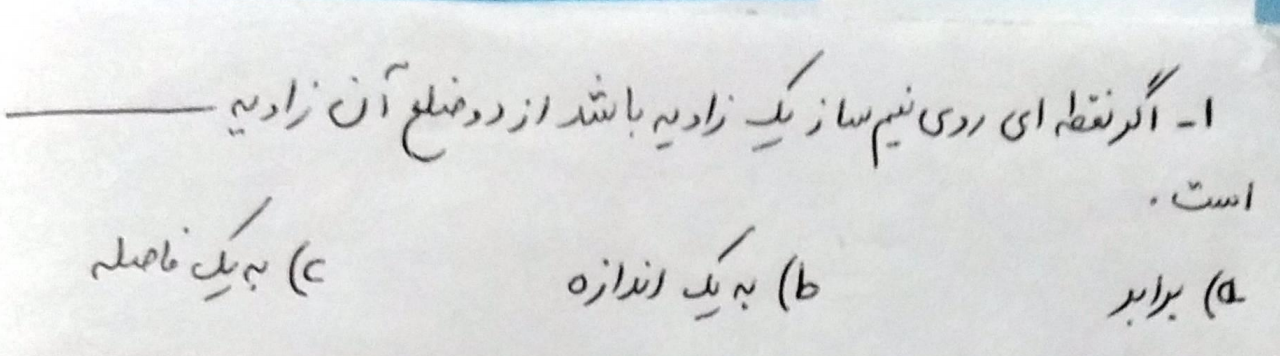 ۱- اگر نقطه ای روی نیم ساز یک زاویه باشد از دو ضلع آن زاویه ـــــــــ
است .
a) برابر b) به یک اندازه c) به یک فاصله